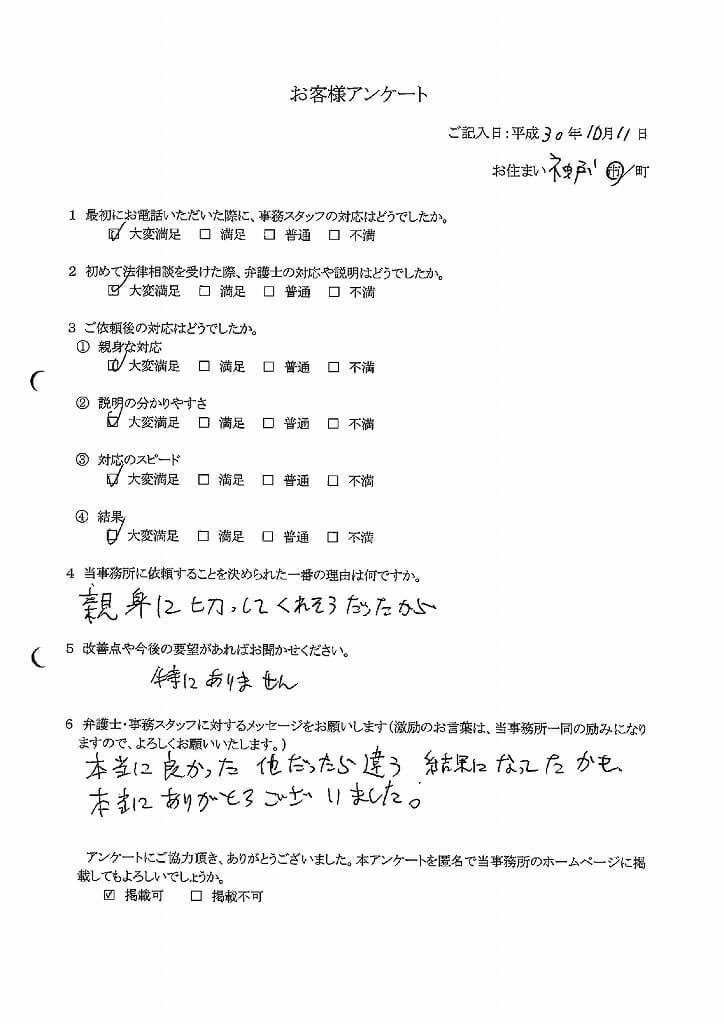 お客様アンケート
ご記入日:平成30年10月11日
お住まい 神戸 市/町
1 最初にお電話いただいた際に、事務スタッフの対応はどうでしたか。
☑ 大変満足 □ 満足 □ 普通 □ 不満
2 初めて法律相談を受けた際、弁護士の対応や説明はどうでしたか。
☑ 大変満足 □ 満足 □ 普通 □ 不満
3 ご依頼後の対応はどうでしたか。
① 親身な対応
☑ 大変満足 □ 満足 □ 普通 □ 不満
② 説明の分かりやすさ
☑ 大変満足 □ 満足 □ 普通 □ 不満
③ 対応のスピード
☑ 大変満足 □ 満足 □ 普通 □ 不満
④ 結果
☑ 大変満足 □ 満足 □ 普通 □ 不満
4 当事務所に依頼することを決められた一番の理由は何ですか。
親身に してくれそうだったから
5 改善点や今後の要望があればお聞かせください。
特にありません
6 弁護士・事務スタッフに対するメッセージをお願いします(激励のお言葉は、当事務所一同の励みになり
ますので、よろしくお願いいたします。)
本当に良かった 他だったら違う 結果になってたかも、
本当にありがとうございました。
アンケートにご協力頂き、ありがとうございました。本アンケートを匿名で当事務所のホームページに掲
載してもよろしいでしょうか。
☑ 掲載可 □ 掲載不可